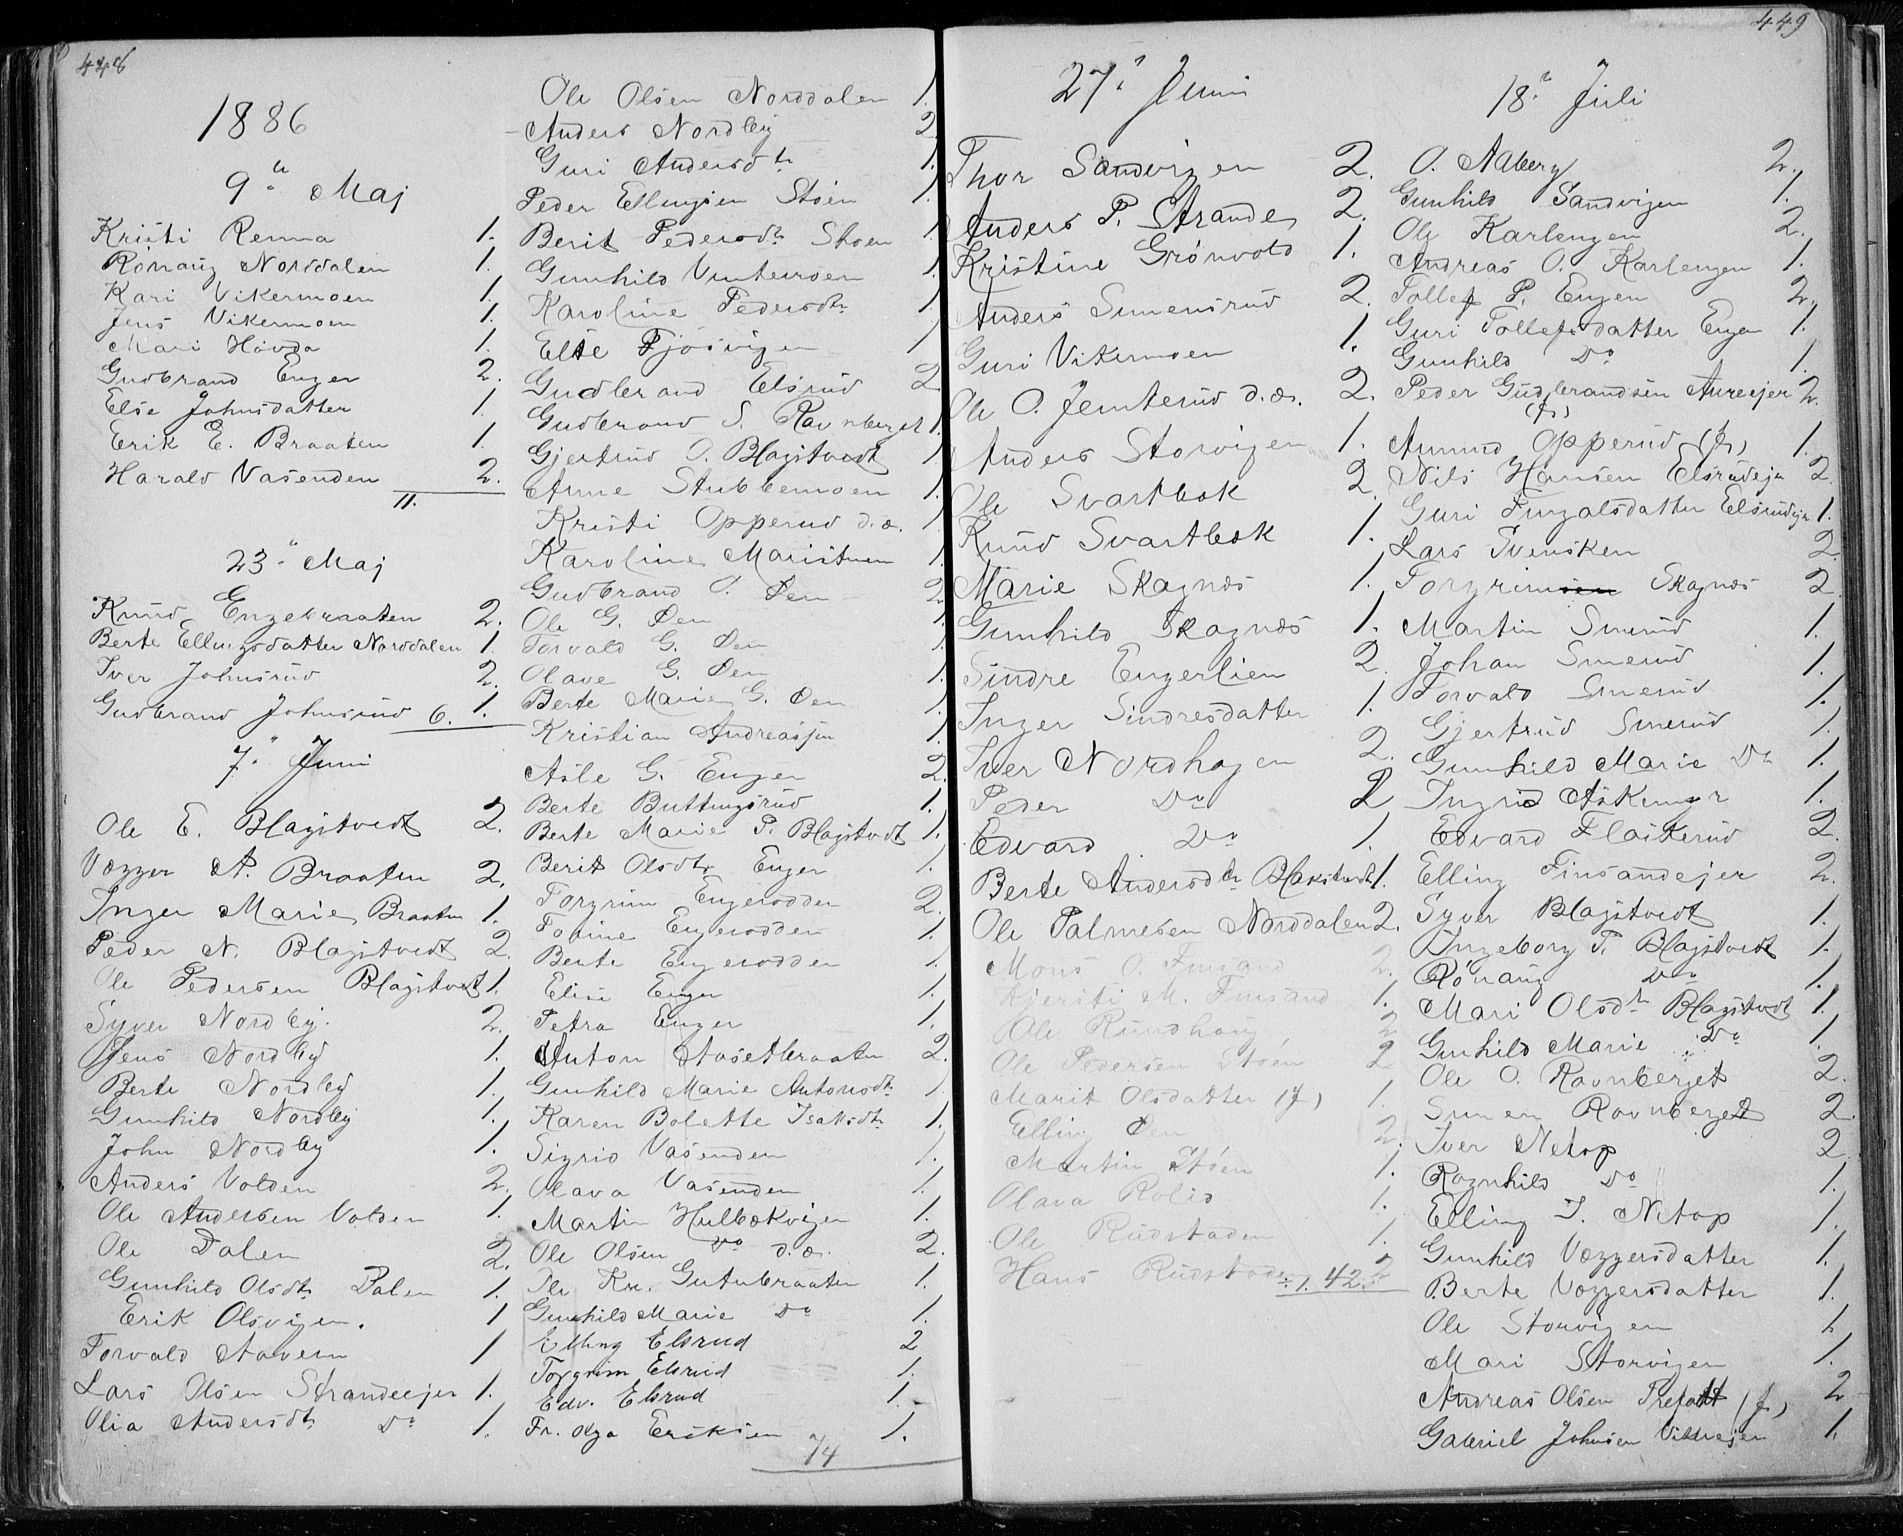 448
1886
9de Maj
Kristi Renna 1.
Rönaug Norddalen 1.
Kari Vikermoen 1.
Jens Vikermoen 1.
Mari Hovda 1.
Gudbrand Enger 2.
Else Johnsdatter 1.
Erik E. Braaten 1.
Harald Vasenden 2.
11.
23. Maj
Knud Engebraaten 2.
Berte Ellingsdatter Norddalen 1.
Iver Johnsrud 2.
Gudbrand Johnsrud 1.
6.
7. Juni
Ole E. Blagstvedt 2.
Vegger A. Braaten 2.
Inger Marie Braaten 1.
Peder N. Blagstvedt 2.
Ole Pedersen Blagstvedt 1.
Syver Nordby. 2.
Jens Nordby 1.
Berte Nordby 1.
Gunhild Nordby 1.
John Nordby 1.
Anders Volden 2.
Ole Andersen Volden 1.
Ole Dalen 2.
Gunhild Olsdtr Dalen 1.
Erik Olsvigen. 1
Torvald Stavern 1
Lars Olsen Strandeejer 1.
Olia Andersdtr Do 1.
Ole Olsen Norddalen 1.
Anders Nordby 2.
Guri Andersdtr 1.
Peder Ellingsen Stöen 1.
Berit Pedersdtr Stöen 1.
Gunhild Vintermoen 1.
Karoline Pedersdtr 1.
Else Fjösvigen 1
Gudbrand Elsrud 2
Gudbrand S. Ravnberget 1.
Gjertrud O. Blagstvedt 1.
Anne Stubbemoen 1.
Kristi Opperud d.æ. 1.
Karoline Maristuen 1.
Gudbrand O. Øen 2
Ole G. Øen 1.
Torvald G. Øen 1.
Olave G. Øen 1.
Berte Marie G. Øen 1.
Kristian Andreassen 1.
Asle G. Enger 2.
Berte Buttingsrud 1.
Berte Marie P. Blagstvedt 1.
Berit Olsdtr Enger 1.
Torgrim Engerodden 2.
Torine Engerodden 1.
Berte Engerodden 1.
Elise Enger 1.
Petra Enger 1.
Anton Aasetbraaten 2.
Gunhild Marie Antonsdtr 1.
Karen Bolette Isaksdtr 1.
Sigrid Vasenden 1.
Olava Vasenden 1.
Martin Hulbækvigen 1.
Ole Olsen Do d.æ. 2.
Ole Kr. Gutubraaten 1.
Gunhild Marie Do 1.
Elling Elsrud 2
Torgrim Elsrud 1.
Edv. Elsrud 1.
Fr. Olga Eriksen 1.
74
449
27. Juni
Thor Sandvigen 2.
Anders P. Strande 2.
Kristine Grönvold 1.
Anders Simensrud 2.
Guri Vikermoen 1.
Ole O. Jemterud d.æ. 2.
Anders Storvigen 1.
Ole Svartbek 2.
Knud Svartbæk 1.
Marie Skagnæs 1.
Gunhild Skagnæs 1.
Sindre Engerlien 2.
Inger Sindresdatter 1.
Iver Nordhagen 2.
Peder Do 2
Edvard Do 1.
Berte Andersdtr Blakstvedt 1.
Ole Palmesen Norddalen 2.
Mons O. Finsand 2.
Kjersti M. Finsand 1.
Ole Rundhaug 2
Ole Pedersen Stöen 2
Marit Olsdatter (f) 1.
Elling Øen 2.
Martin Stöen 1.
Olava Rolid 1.
Ole Rudstaden 1.
Hans Rudstaden 2
÷1. 42.
18. Juli
O. Aaberg 2.
Gunhild Sandvigen 1.
Ole Karlengen 2.
Andreas O. Karlengen 1.
Tollef P. Engen 2.
Guri Tollefsdatter Engen 1.
Gunhild Do 1.
Peder Gudbrandsen Aureejer 2.
(f)
Amund Opperud (f) 1.
Nils Hansen Elsrudejer 2.
Guri Tingalsdatter Elsrudejer 1.
Lars Svensken 2
Torgrimsen Skagnæs 2
Martin Smerud 1.
Johan Smerud 1.
Torvald Smerud 1.
Gjertrud Smerud 1.
Gunhild Marie Do 1.
Ingrid Askeengr 1.
Edvard Flaskerud 2.
Elling Finsandejer 2.
Syver Blagstvedt 1.
Ingeborg P. Blagstvedt 1.
Rönaug Do 1.
Mari Olsdtr Blagstvedt 1.
Gunhild Marie Do 1.
Ole O. Ravnberget 2.
Simen Ravnberget 2.
Iver Netop 2
Ragnhild Do 1.
Elling I. Netop 1.
Gunhild Væggersdatter 1.
Berte Væggersdatter 1.
Ole Storvigen 1.
Mari Storvigen 1.
Andreas Olsen (f) 2
Gabriel Johnsen 1.